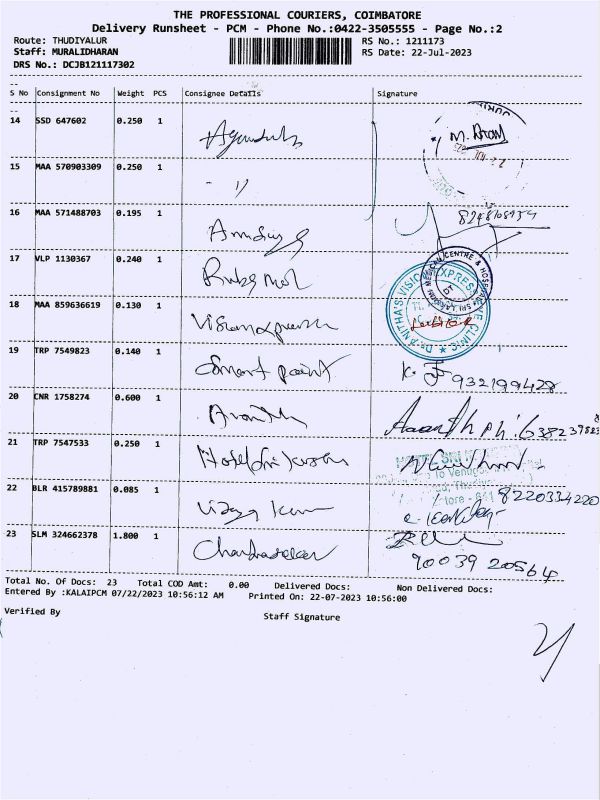 THE PROFESSIONAL COURIERS, COIMBATORE
Delivery Runsheet - PCM - Phone No.:0422-3505555 - Page No.:2
Route: THUDIYALUR
RS No.: 1211173
Staff: MURALIDHARAN
RS Date: 22-Jul-2023
DRS No.: DCJB121117302
S No Consignment No Weight PCS Consignee Details Signature
14 SSD 647602 0.250 1
15 MAA 570903309 0.250 1 - 11
16 MAA 571488703 0.195 1
17 VLP 1130367 0.240 1
18 MAA 859636619 0.130 1 Visionxpress
19 TRP 7549823 0.140 1 Smart point 932199428
20 CNR 1758274 0.600 1 Ananth Ananth Ph:
21 TRP 7547533 0.250 1 Hotel Sri
22 BLR 415789881 0.085 1 8220334220
23 SLM 324662378 1.800 1 Chandrasekar
90039 20564
Total No. Of Docs: 23 Total COD Amt: 0.00 Delivered Docs: Non Delivered Docs:
Entered By :KALAIPCM 07/22/2023 10:56:12 AM Printed On: 22-07-2023 10:56:00
Verified By
Staff Signature